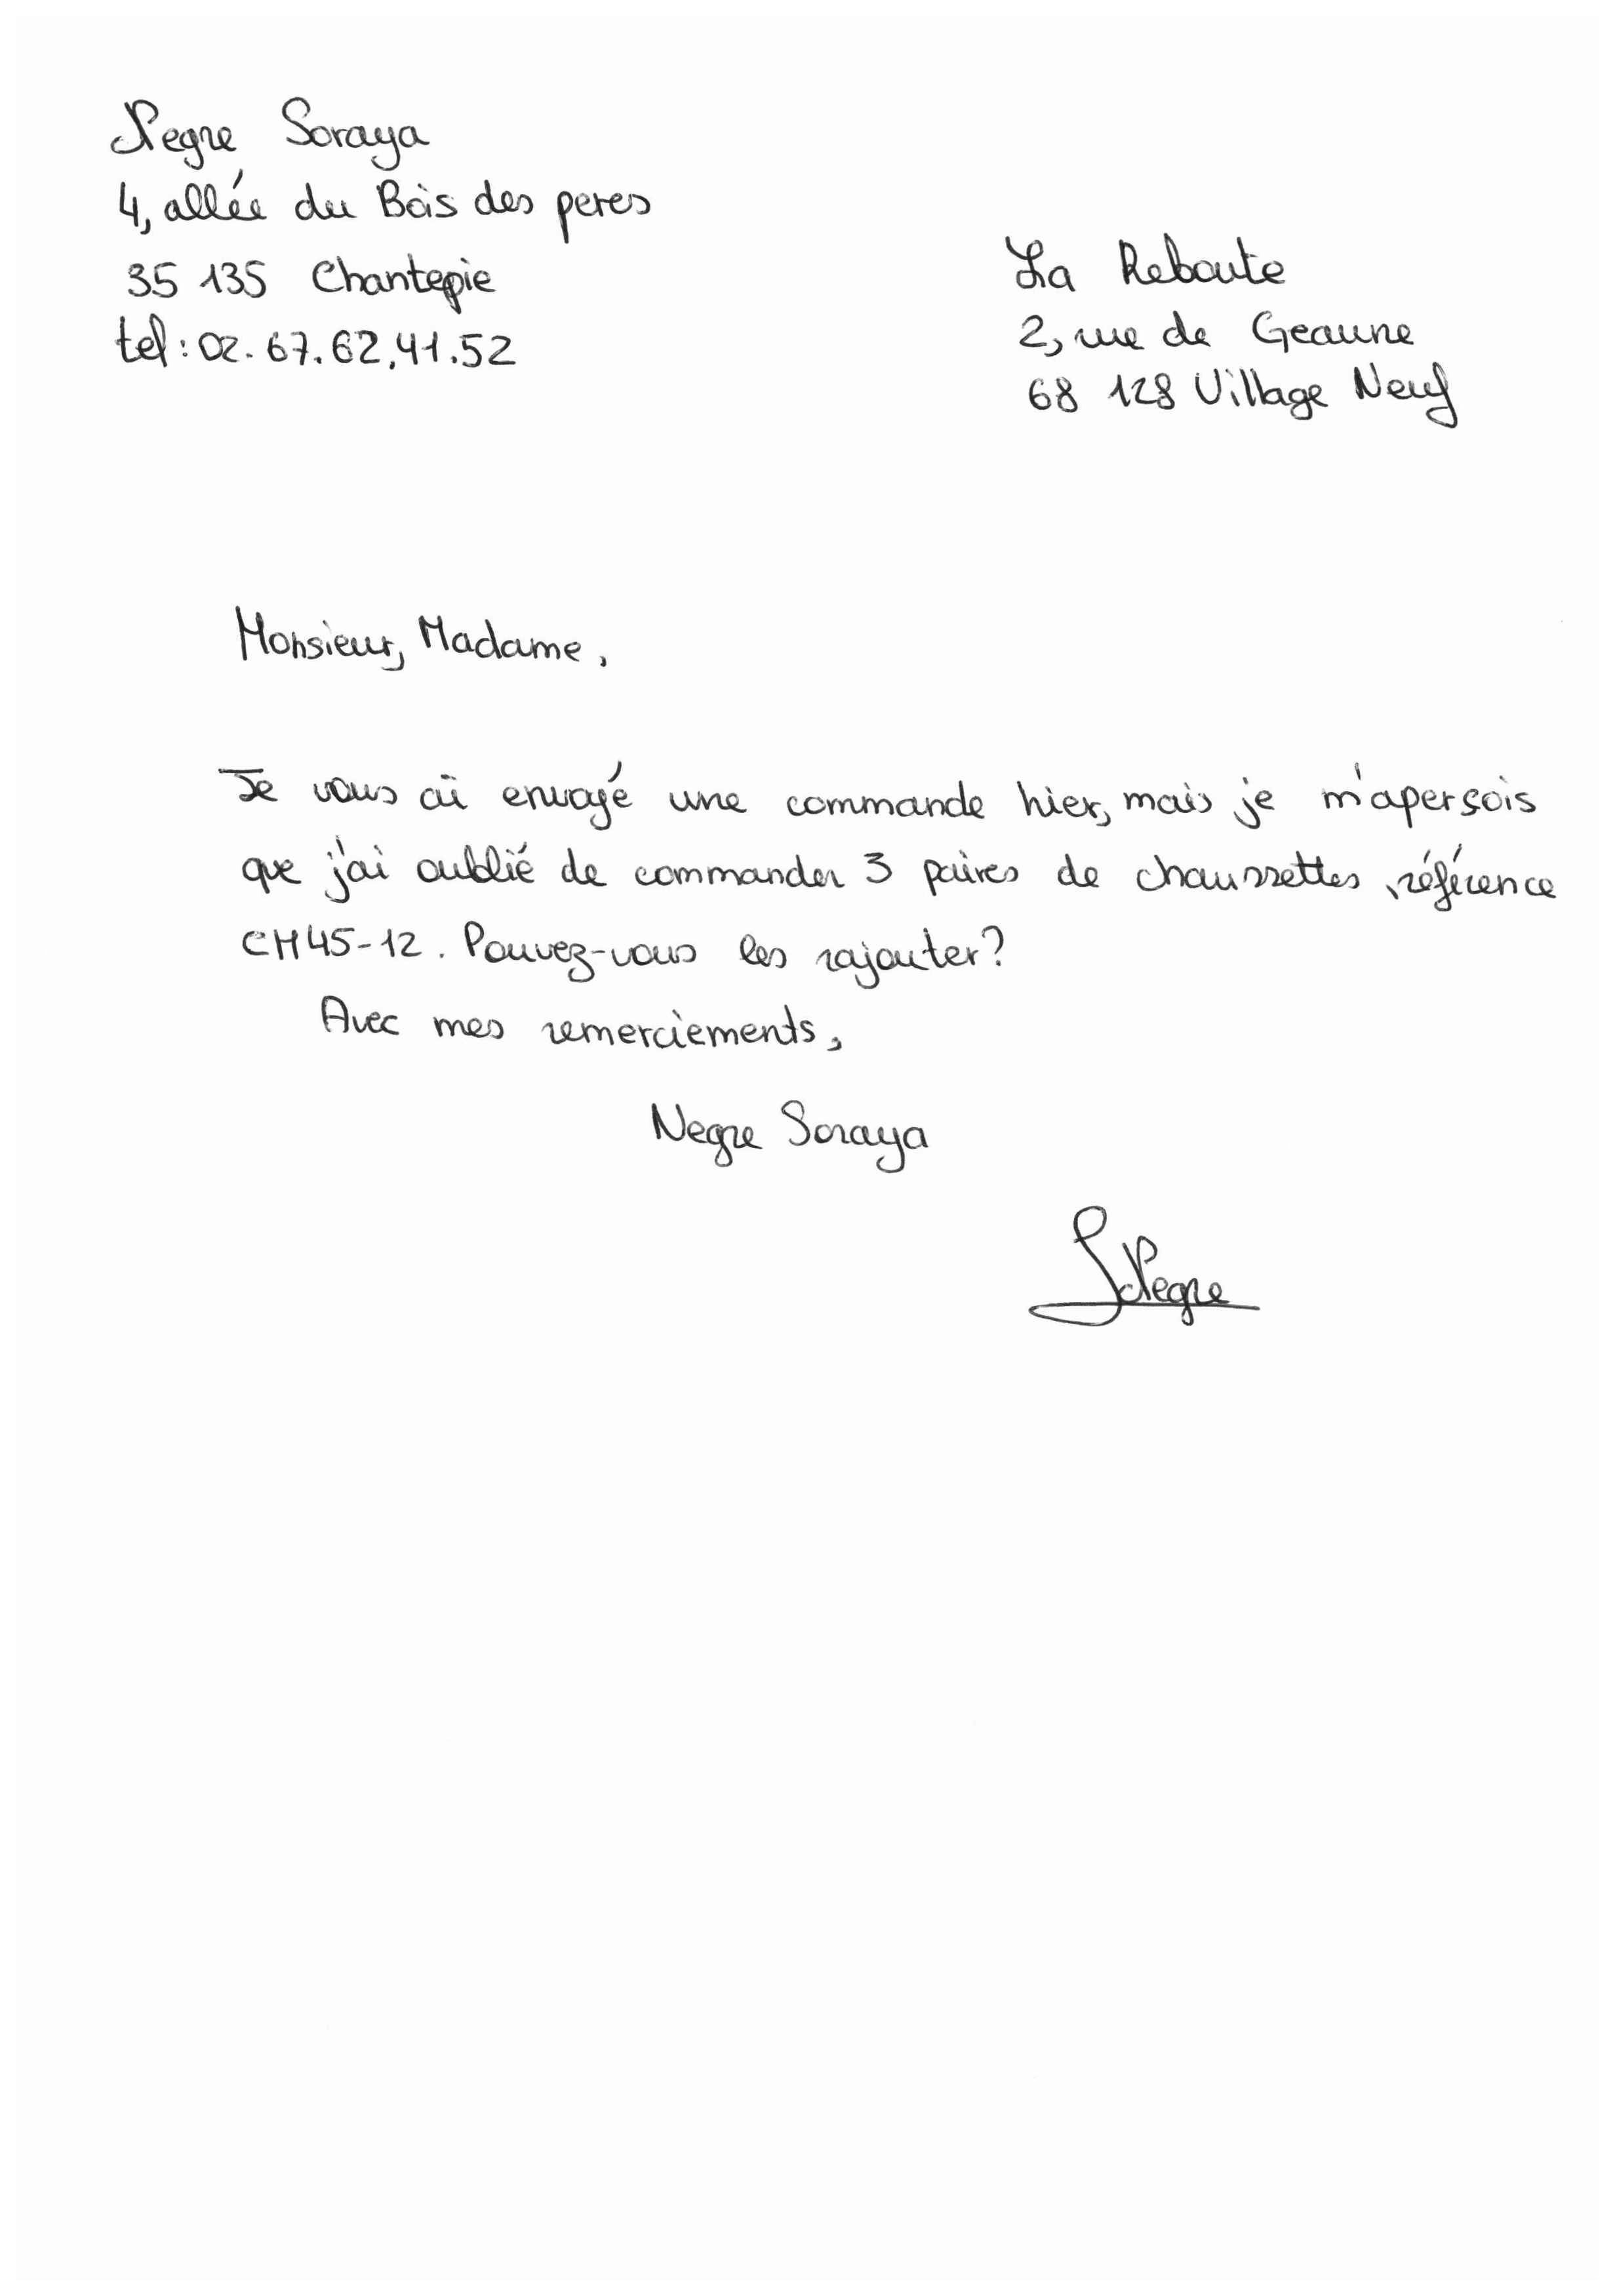 Negre Soraya
4, allée du Bois des peres
35 135 Chantepie
tel : 02. 67. 62. 41. 52
La Reboute
2, rue de Geaune
68 128 Village Neuf
Monsieur, Madame,
Je vous ai envoyé une commande hier, mais je m'aperçois
que j'ai oublié de commander 3 paires de chaussettes, référence
CH45-12. Pouvez-vous les rajouter ?
Avec mes remerciements,
Negre Soraya
SNegre